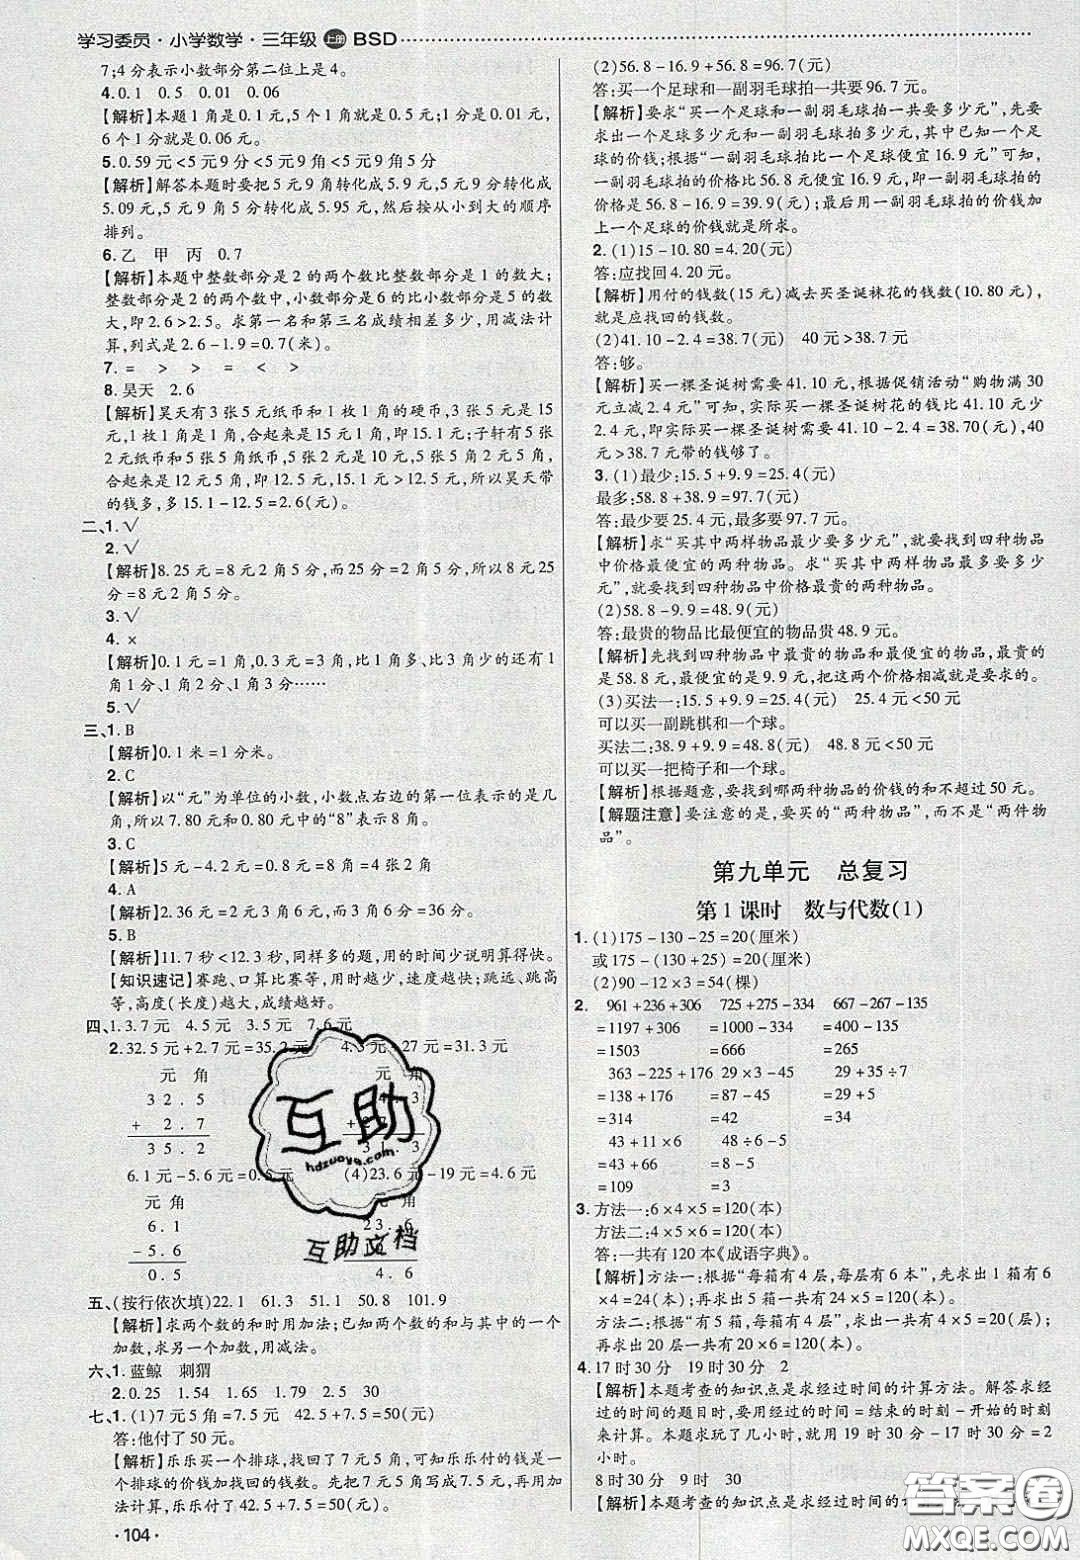 学习委员·小学数学·三年级 上册 BSD
7;4分表示小数部分第二位上是4。
4.0.1 0.5 0.01 0.06
【解析】本题1角是0.1元,5角就是0.5元;1分是0.01元,
6个1分就是0.06元。
5.0.59元<5元9分<5元9角<5元9角5分
【解析】解答本题时要把5元9角转化成5.9元,5元9分转化成
5.09元,5元9角5分转化成5.95元,然后按从小到大的顺序
排列。
6.乙 甲 丙 0.7
【解析】本题中整数部分是2的两个数比整数部分是1的数大;
整数部分是2的两个数中,小数部分是6的比小数部分是5的数
大,即2.6>2.5。求第一名和第三名成绩相差多少,用减法计
算,列式是2.6-1.9=0.7(米)。
7. = > > = < >
8.昊天 2.6
【解析】昊天有3张5元纸币和1枚1角的硬币,3张5元是15
元,1枚1角是1角,合起来是15元1角,即15.1元;子轩有5张
2元纸币和5张5角纸币,5张2元是10元,5张5角是2元5角,
合起来是12元5角,即12.5元,15.1元>12.5元,所以昊天带
的钱多,多15.1-12.5=2.6(元)。
二、1.√
2.√
【解析】8.25元=8元2角5分,而25分=2角5分,所以8元25
分=8元2角5分。
3.√
4.×
【解析】0.1元=1角,0.3元=3角,比1角多、比3角少的还有1
角1分、1角2分、1角3分……
5.√
三、1.B
【解析】0.1米=1分米。
2.C
【解析】以“元”为单位的小数,小数点右边的第一位表示的是几
角,所以7.80元和0.80元中的“8”表示8角。
3.C
【解析】5元-4.2元=0.8元=8角=4张2角
4.A
【解析】2.36元=2元3角6分=2元+3角+6分
5.B
【解析】11.7秒<12.3秒,同样多的题,用的时间少说明算得快。
【知识速记】赛跑、口算比赛等,用时越少,速度越快;跳远、跳高
等,高度(长度)越大,成绩越好。
四、1.3.7元 4.5元 3.5元 7.6元
2.32.5元+2.7元=35.2元 4.3元+27元=31.3元
元 角 元 角
3 2 . 5
+ 2 . 7
3 5 . 2 3 1 . 3
6.1元-5.6元=0.5元 (4)23.6元-19元=4.6元
元 角
6 . 1 2 3 . 6
- 5 . 6
0 . 5 4 . 6
五、(按行依次填)22.1 61.3 51.1 50.8 101.9
【解析】求两个数的和时用加法;已知两个数的和与其中的一个
加数,求另一个加数,用减法。
六、1.蓝鲸 刺猬
2.0.25 1.54 1.65 1.79 2.5 30
七、1.(1)7元5角=7.5元 42.5+7.5=50(元)
答:他付了50元。
【解析】乐乐买一个排球,找回了7元5角,可知乐乐付的钱是一
个排球的价钱加找回的钱数。先把7元5角写成7.5元,再用加
法计算,乐乐付了42.5+7.5=50(元)。
·104·
(2)56.8-16.9+56.8=96.7(元)
答:买一个足球和一副羽毛球拍一共要96.7元。
【解析】要求“买一个足球和一副羽毛球拍一共要多少元”,先要
求出一个足球多少元和一副羽毛球拍多少元,其中已知一个足
球的价钱;根据“一副羽毛球拍比一个足球便宜16.9元”可知,
一副羽毛球拍的价格比56.8元便宜16.9元,即一副羽毛球拍
的价格是56.8-16.9=39.9(元);最后用一副羽毛球拍的价钱加
上一个足球的价钱就是所求。
2.(1)15-10.80=4.20(元)
答:应找回4.20元。
【解析】用付的钱数(15元)减去买圣诞袜花的钱数(10.80元),
就是应找回的钱数。
(2)41.10-2.4=38.7(元) 40元>38.7元
答:够。
【解析】买一棵圣诞树需要41.10元,根据促销活动“购物满30
元立减2.4元”可知,实际买一棵圣诞树花的钱比41.10元少
2.4元,即实际买一棵圣诞树需要41.10-2.4=38.70(元),40
元>38.7元带的钱够了。
3.(1)最少:15.5+9.9=25.4(元)
最多:58.8+38.9=97.7(元)
答:最少要25.4元,最多要97.7元。
【解析】求“买其中两样物品最少要多少元”,就要找到四种物品
中价格最便宜的两种物品。求“买其中两样物品最多要多少
元”,就要找到四种物品中价格最贵的两种物品。
(2)58.8-9.9=48.9(元)
答:最贵的物品比最便宜的物品贵48.9元。
【解析】先找到四种物品中最贵的物品和最便宜的物品,最贵的
是58.8元,最便宜的是9.9元,把这两个价格相减就是要求的。
(3)买法一:15.5+9.9=25.4(元) 25.4元<50元
可以买一副跳棋和一个球。
买法二:38.9+9.9=48.8(元) 48.8元<50元
可以买一把椅子和一个球。
【解析】根据题意,要找到哪两种物品的价钱的和不超过50元。
【解题注意】要注意的是,要买的“两种物品”,而不是“两件物
品”。
第九单元 总复习
第1课时 数与代数(1)
1.(1)175-130-25=20(厘米)
或175-(130+25)=20(厘米)
(2)90-12×3=54(棵)
2. 961+236+306 725+275-334 667-267-135
=1197+306 =1000-334 =400-135
=1503 =666 =265
363-225+176 29×3-45 29+35÷7
=138+176 =87-45 =29+5
=314 =42 =34
43+11×6 48÷6-5
=43+66 =8-5
=109 =3
3.方法一:6×4×5=120(本)
方法二:4×5×6=120(本)
答:一共有120本《成语字典》。
【解析】方法一:根据“每箱有4层,每层有6本”,先求出1箱有6
×4=24(本);再求出5箱一共有24×5=120(本)。
方法二:根据“有5箱,每箱有4层”,先求出一共有4×5=20(层);
再求出20层一共有20×6=120(本)。
4.17时30分 19时30分 2
【解析】本题考查的知识点是求经过时间的计算方法。解答求经
过的时间的题目时,要用经过的时间=结束的时刻-开始的时刻
来计算。本题求玩了几小时,就用19时30分-17时30分=2
小时。
8时30分 9时 30
【解析】本题考查的知识点是求经过时间的
互助
hdzuoye.com
互助文档
答案圈
MXQE.COM